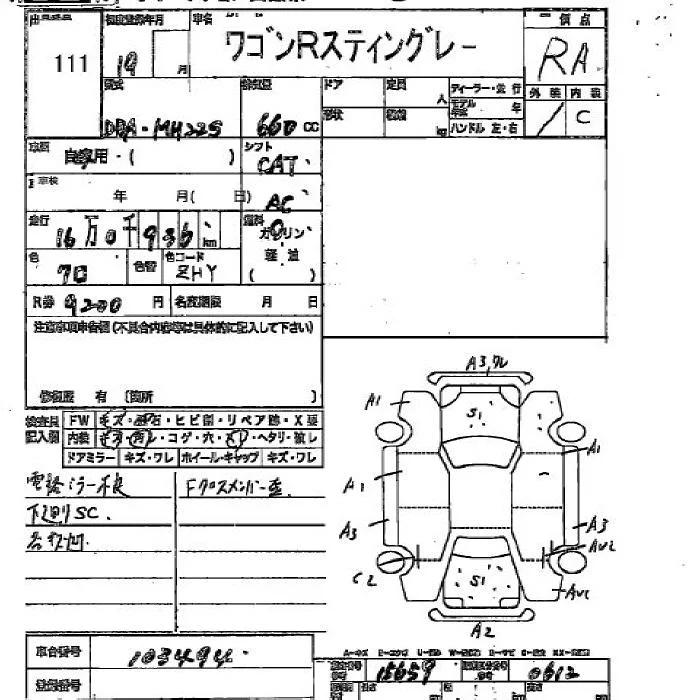 111
初度登録年月
19
月
車名
ワゴンRスティングレー
評価点
RA
型式
DBA-MH22S
排気量
660 CC
ドア
形状
定員
人
kg
ディーラー・並行
モデル年式 年
ハンドル 左・右
外装 内装
C
車歴
自家用・( )
シフト
CAT
車検
年 月( 日)
AC
走行
16万0千936 km
燃料
ガソリン
軽油
( )
色
色替
色コード
ZHY
R券 9200 円
名変期限 月 日
注意事項申告欄(不具合内容等は具体的に記入して下さい)
修復歴 有 〔箇所 〕
検査員記入欄
FW キズ・飛石・ヒビ割・リペア跡・X要
内装 ・コゲ・穴・ ・ヘタリ・破レ
ドアミラー キズ・ワレ ホイール・キャップ キズ・ワレ
電格ミラー不良
Fクロスメンバー歪
下廻りSC.
A3,ワレ
A1
S1
A1
A1
A3
A3
C2
S1
A2
車台番号
103494
登録番号
15659
0612